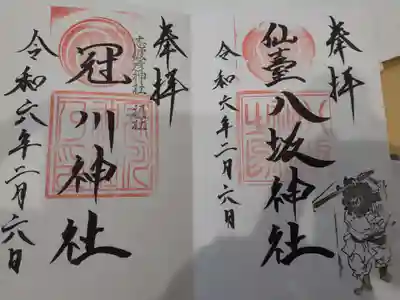 奉拝
仙臺八坂神社
令和六年二月六日
奉拝
志波彦神社
冠川神社
令和六年二月六日